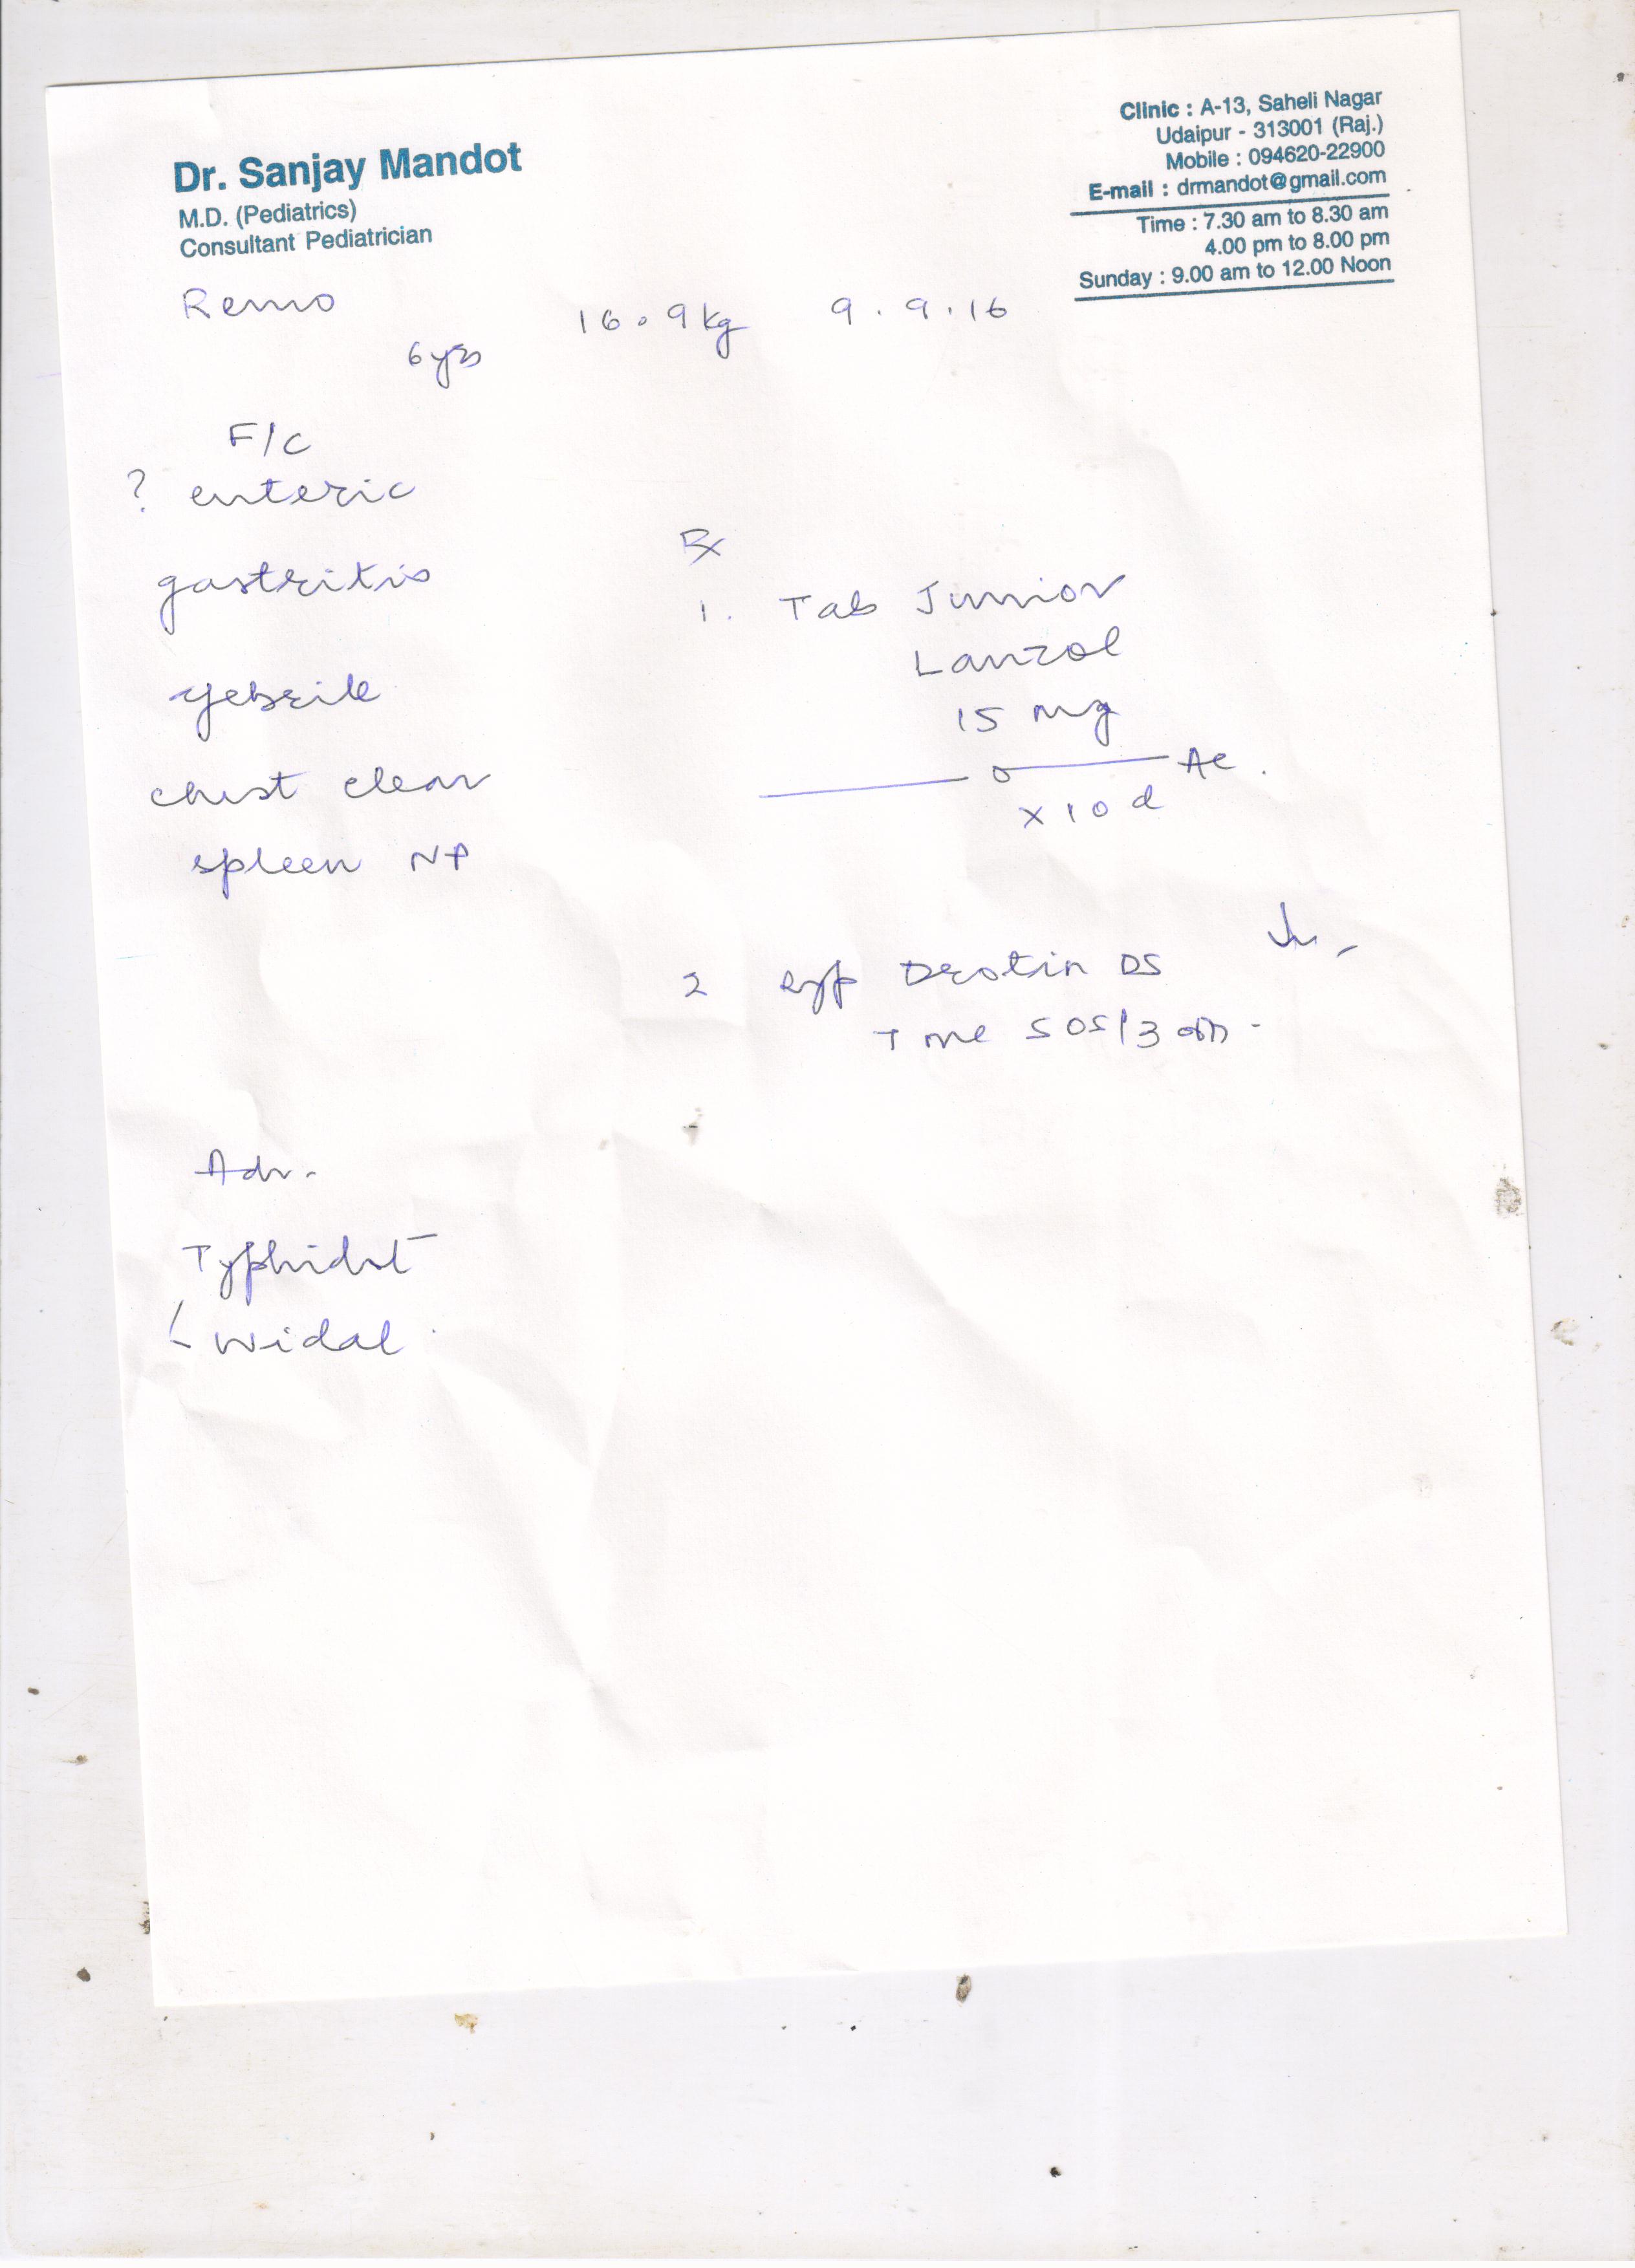 Dr. Sanjay Mandot
M.D. (Pediatrics)
Consultant Pediatrician
Clinic : A-13, Saheli Nagar
Udaipur - 313001 (Raj.)
Mobile : 094620-22900
E-mail : drmandot@gmail.com
Time : 7.30 am to 8.30 am
4.00 pm to 8.00 pm
Sunday : 9.00 am to 12.00 Noon
Remo
6 yrs
16.9 kg 9.9.16
F/C
? enteric
gastritis
febrile
chest clear
spleen NP
Rx
1. Tab Junior
Lanzol
15 mg
— o — AC
x 10 d
2 Syp Drotin DS
SOS/3
Adv.
Typhidot
Widal